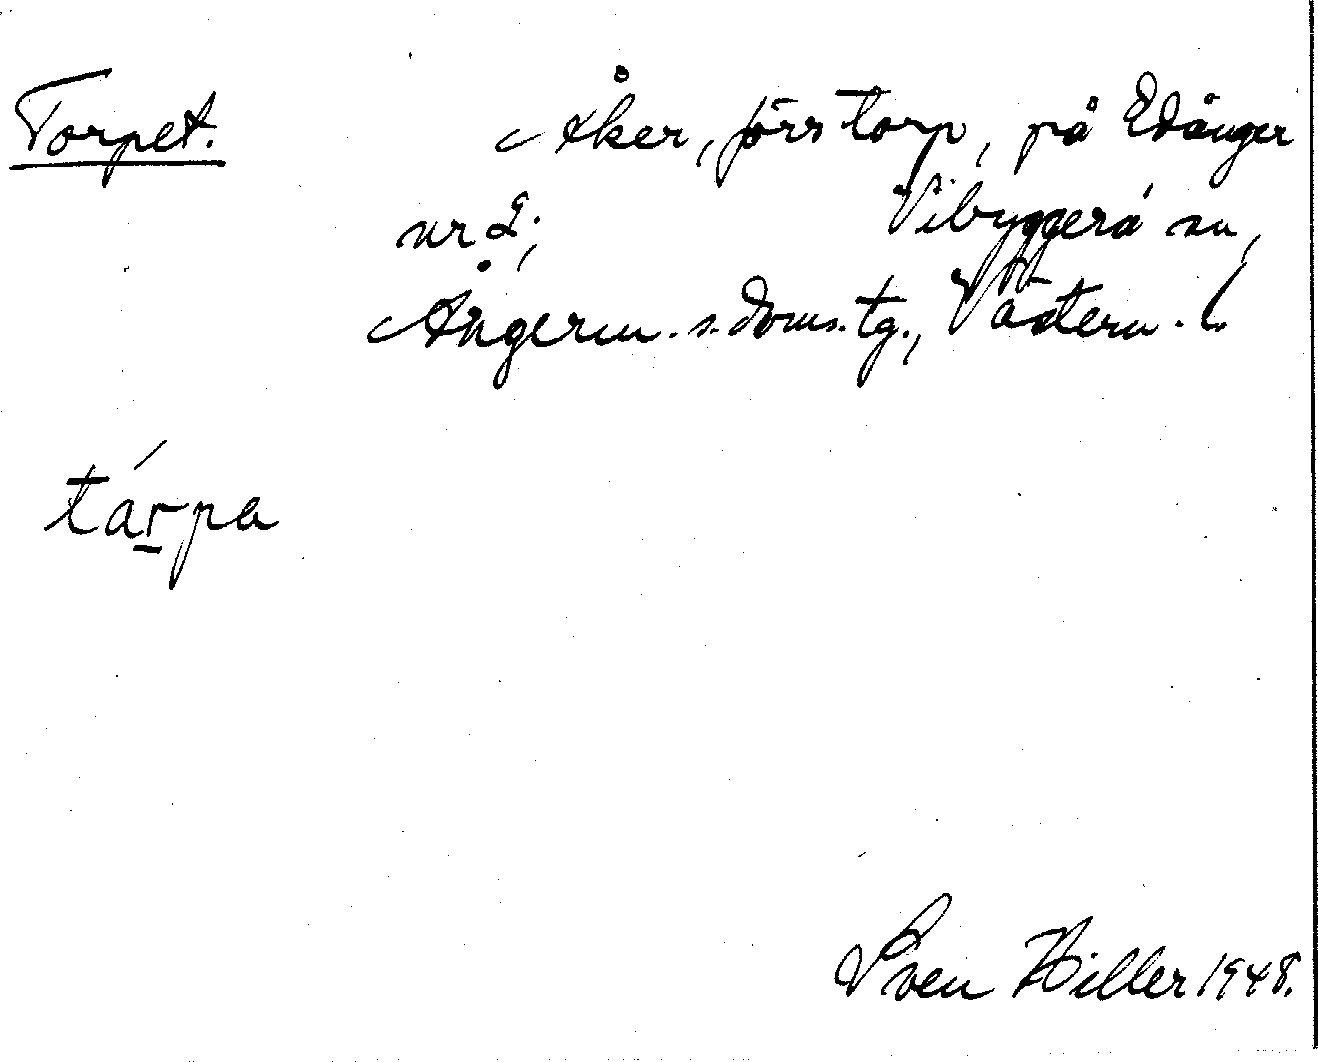 Torpet. Åker, förr torp, på Edånger
nr 2; Vibyggerå sn,
Ångerm. s. doms. tg., Västern. l.
tárpa
Sven Hiller 1948.